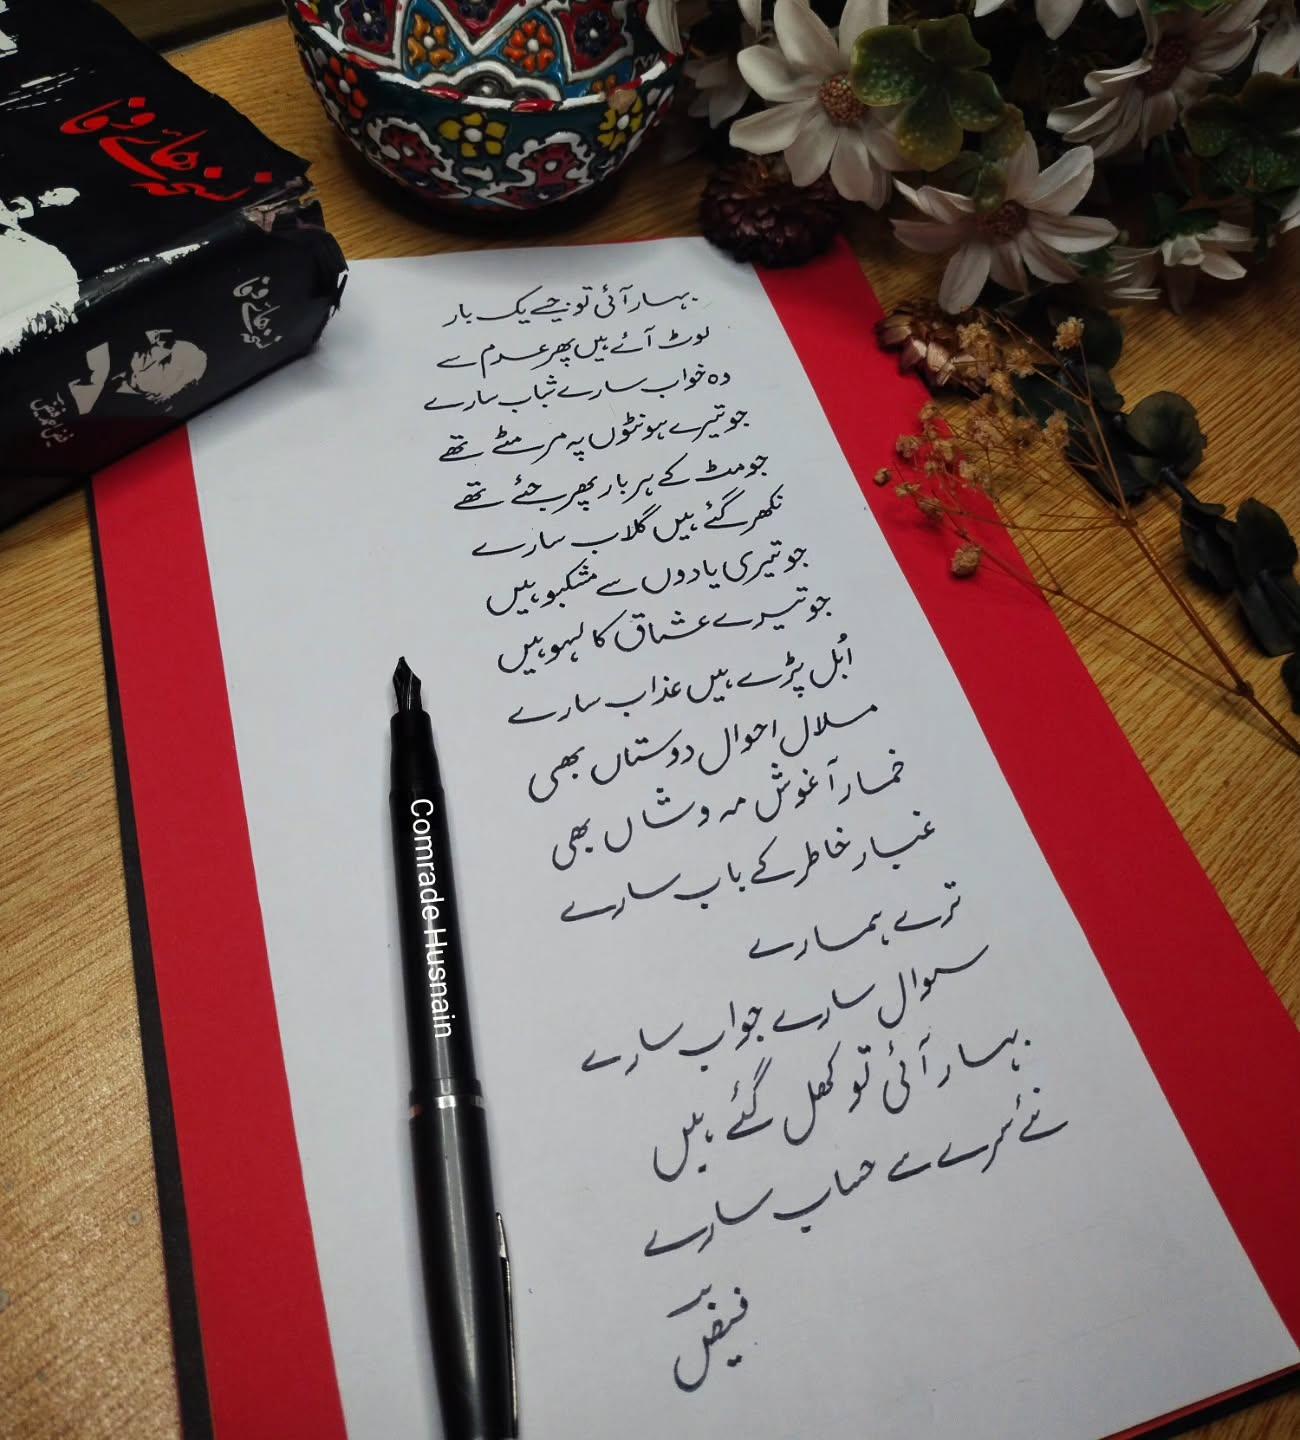 نسخہ ہائے وفا
نسخہ ہائے وفا
فیض احمد فیض
بہار آئی تو جیسے یک بار
لوٹ آئے ہیں پھر عدم سے
وہ خواب سارے شباب سارے
جو تیرے ہونٹوں پہ مر مٹے تھے
جو مٹ کے ہر بار پھر جئے تھے
نکھر گئے ہیں گلاب سارے
جو تیری یادوں سے مشکبو ہیں
جو تیرے عشاق کا لہو ہیں
اُبل پڑے ہیں عذاب سارے
ملال احوال دوستاں بھی
خمار آغوش مہ وشاں بھی
غبار خاطر کے باب سارے
ترے ہمارے
سوال سارے جواب سارے
بہار آئی تو کھل گئے ہیں
نئے سرے سے حساب سارے
فیض
Comrade Husnain